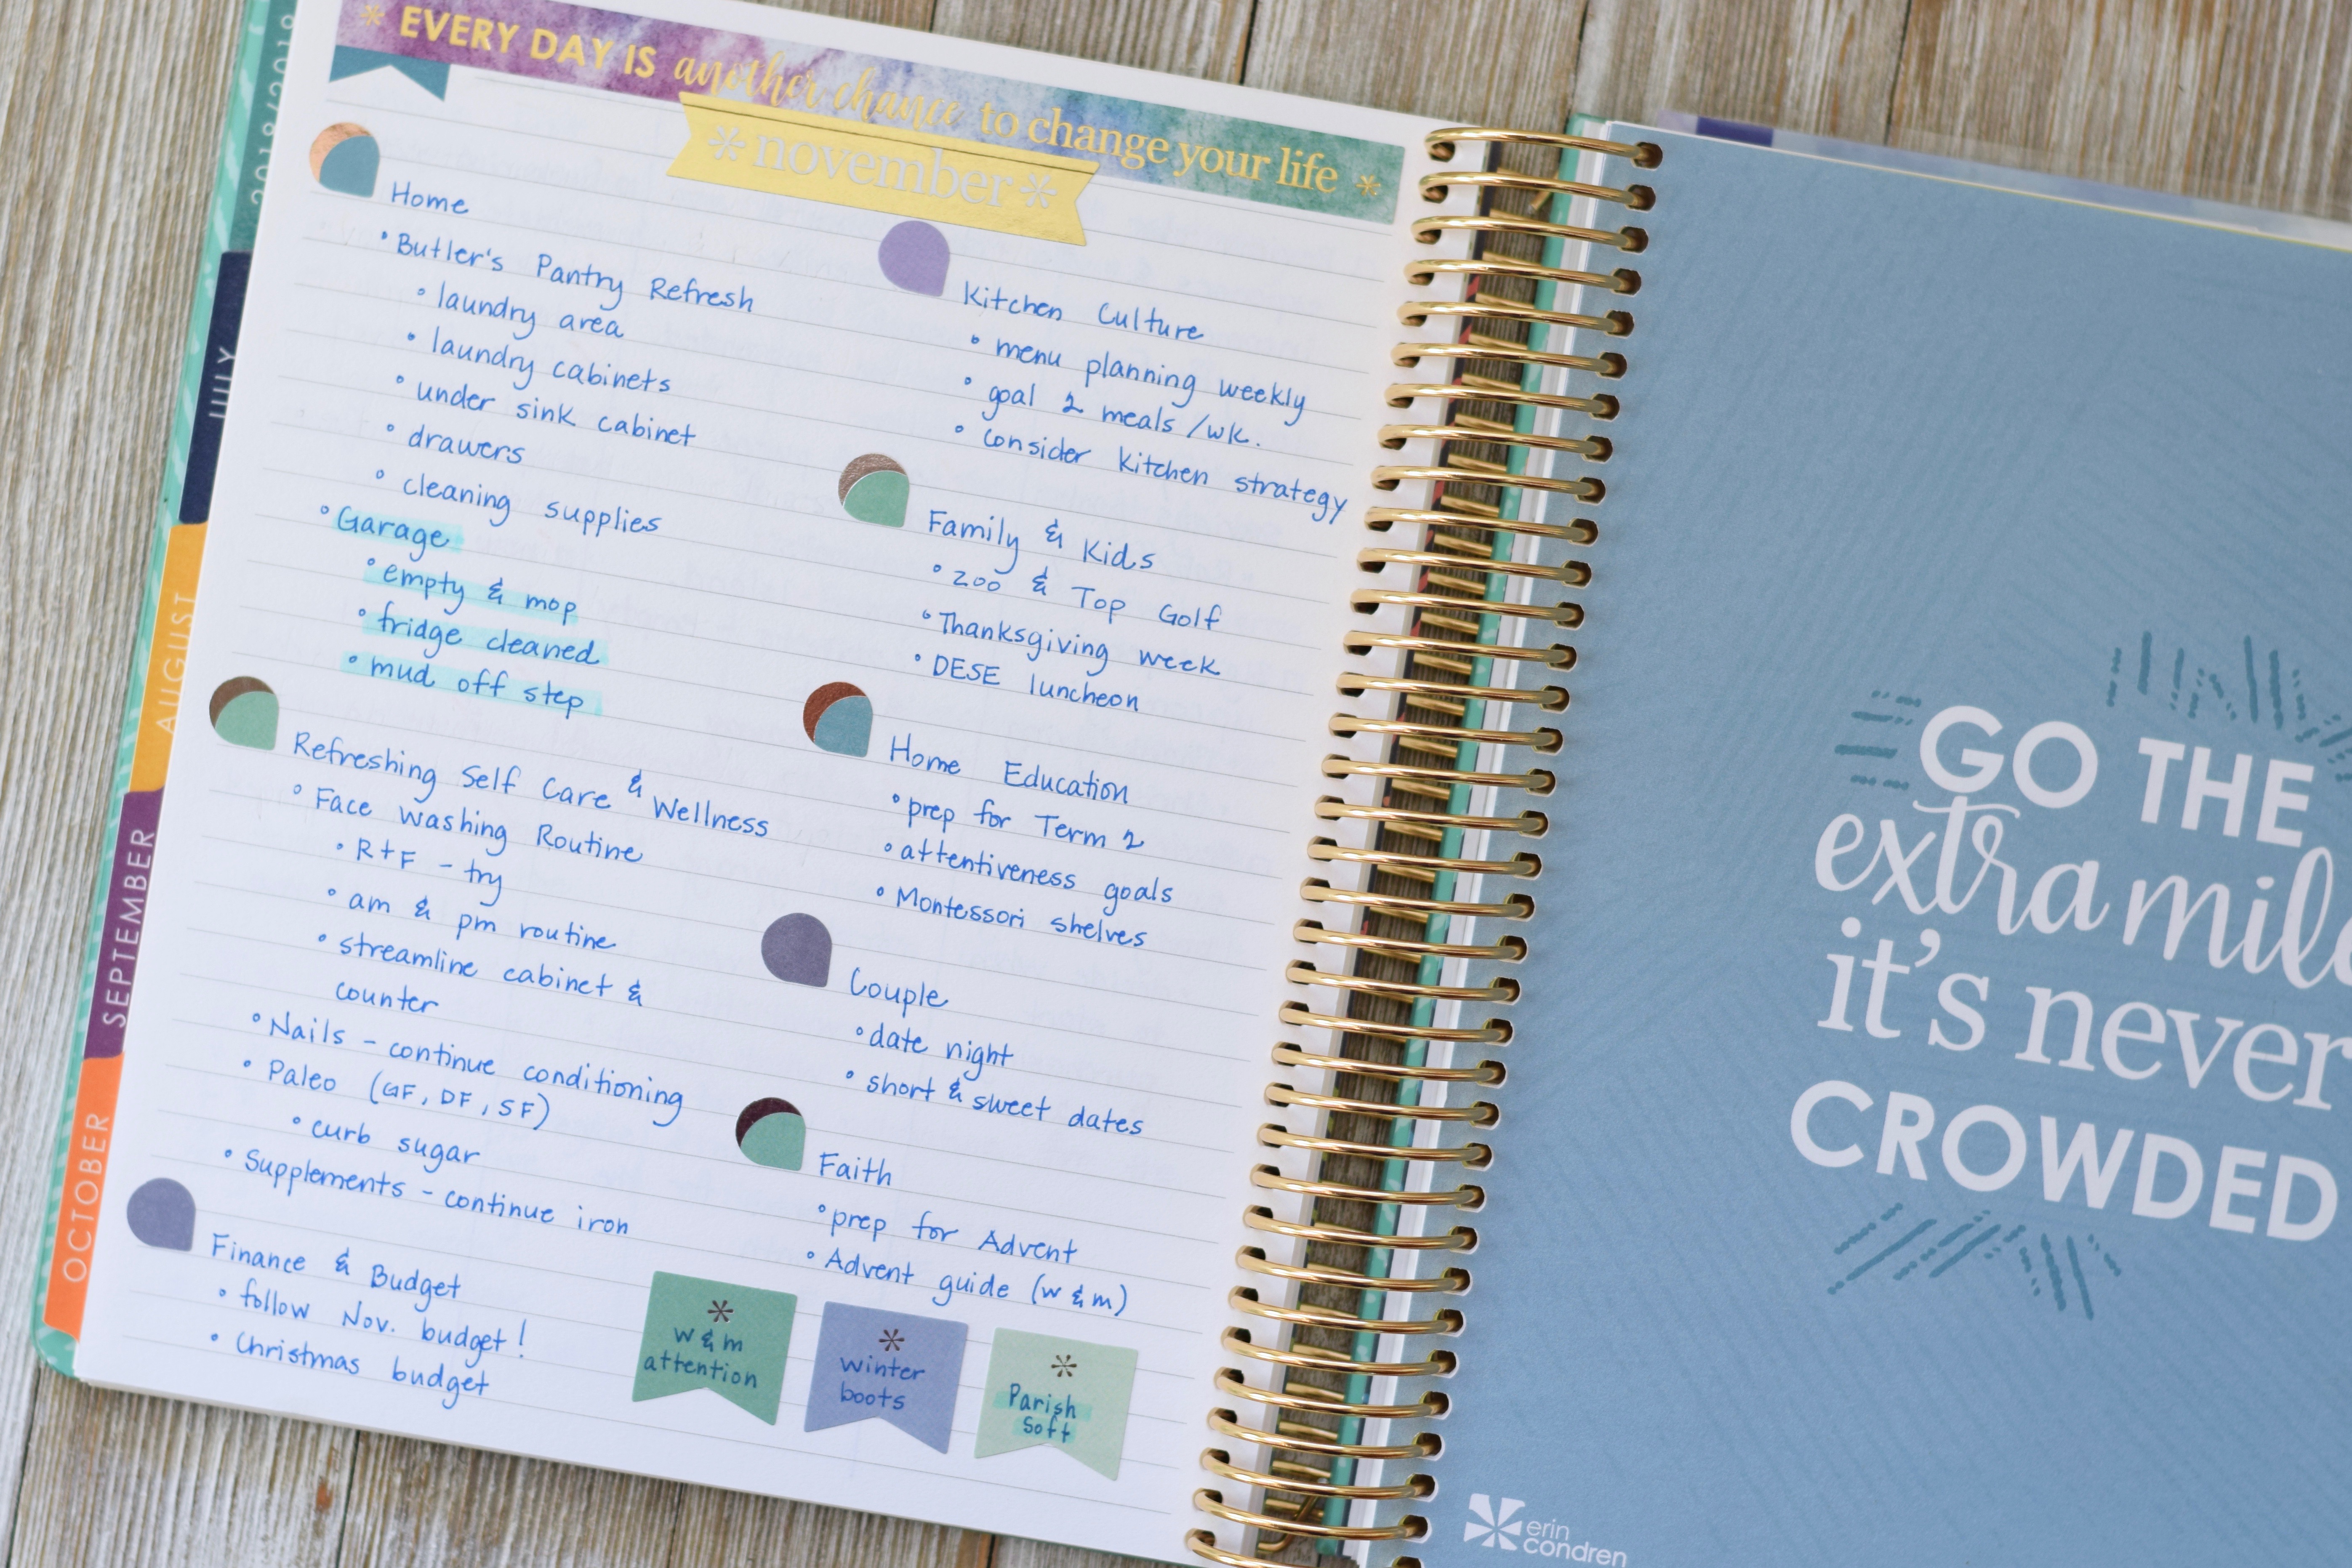 EVERY DAY IS another chance to change your life
november
Home
• Butler's Pantry Refresh
• laundry area
• laundry cabinets
• under sink cabinet
• drawers
• cleaning supplies
• Garage
• empty & mop
• fridge cleaned
• mud off step
Refreshing Self Care & Wellness
• Face Washing Routine
• R+F - try
• am & pm routine
• streamline cabinet &
counter
• Nails - continue conditioning
• Paleo (GF, DF, SF)
• curb sugar
• Supplements - continue iron
Finance & Budget
• follow Nov. budget!
• Christmas budget
Kitchen Culture
• menu planning weekly
• goal 2 meals/wk.
• consider kitchen strategy
Family & Kids
• zoo & Top Golf
• Thanksgiving week
• DESE luncheon
Home Education
• prep for Term 2
• attentiveness goals
• Montessori shelves
Couple
• date night
• short & sweet dates
Faith
• prep for Advent
• Advent guide (w & m)
w & m
attention
winter
boots
Parish
Soft
2018/2019
JULY
AUGUST
SEPTEMBER
OCTOBER
GO THE
extra mil
it's never
CROWDED
erin
condren